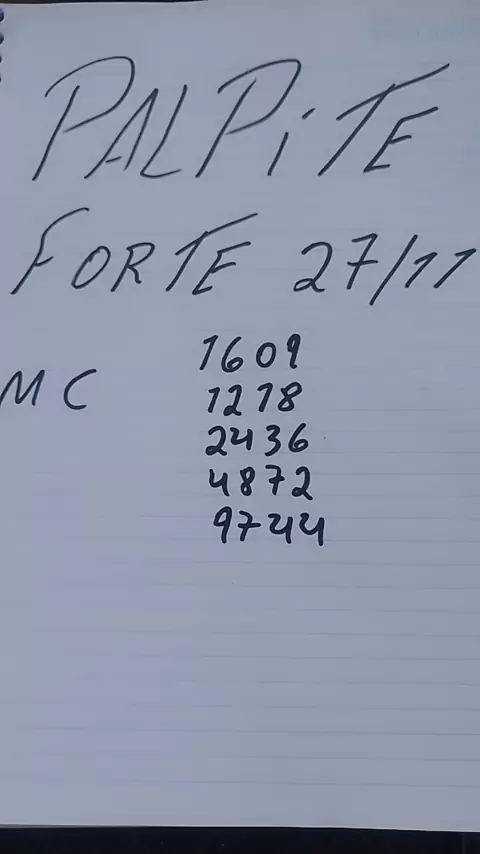 PALPiTE
FORTE 27/11
MC
1609
1218
2436
4872
9744